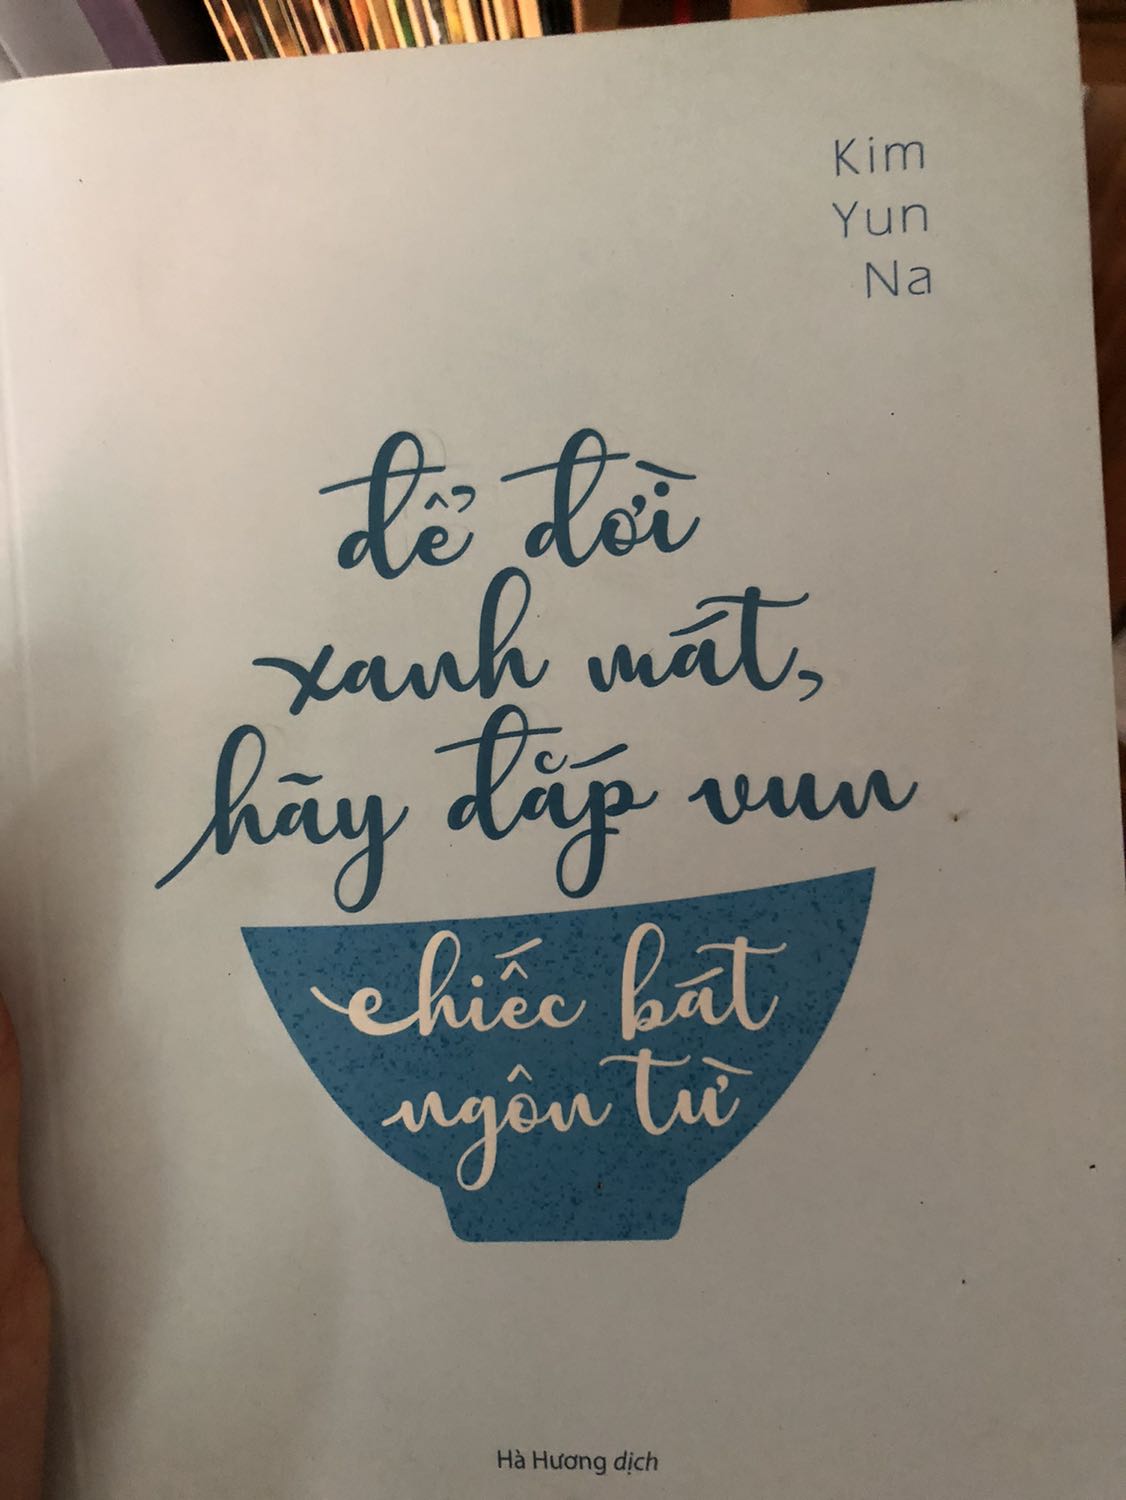 Kim
Yun
Na
để đời
xanh mát,
hãy đắp vun
chiếc bát
ngôn từ
Hà Hương dịch